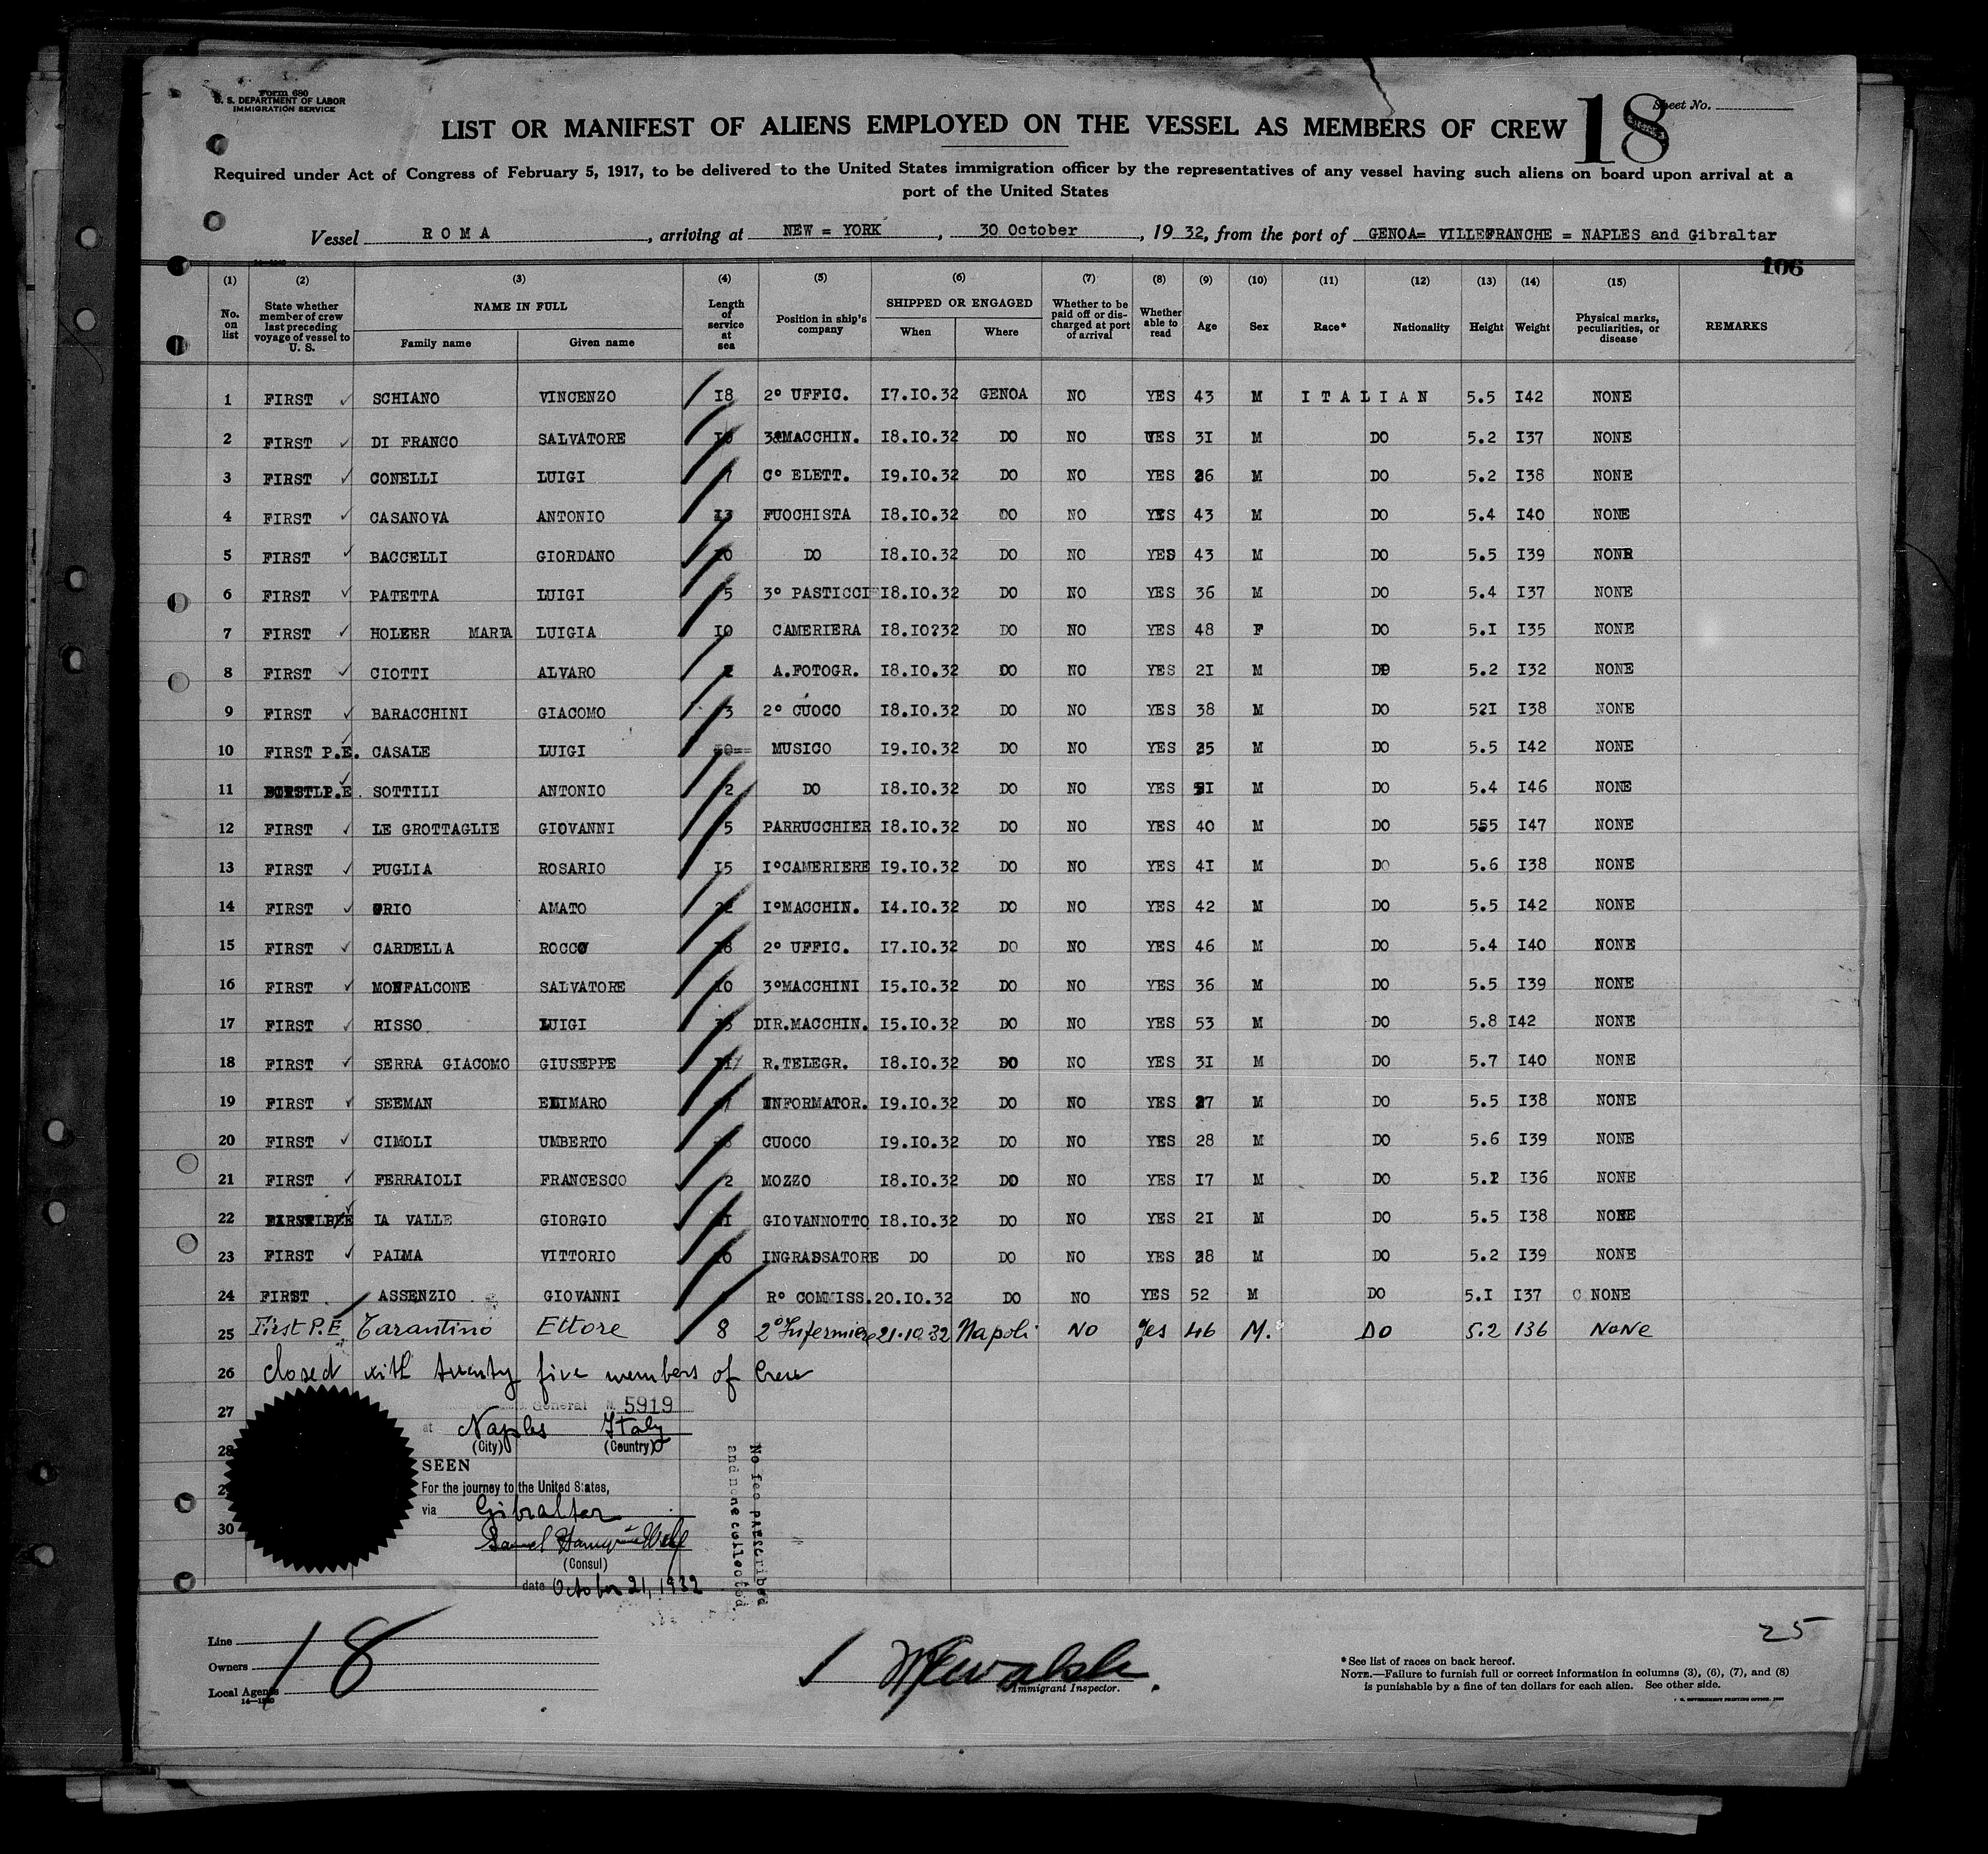 Form 680
U. S. DEPARTMENT OF LABOR
IMMIGRATION SERVICE
Sheet No.
18
LIST OR MANIFEST OF ALIENS EMPLOYED ON THE VESSEL AS MEMBERS OF CREW
Required under Act of Congress of February 5, 1917, to be delivered to the United States immigration officer by the representatives of any vessel having such aliens on board upon arrival at a
port of the United States
Vessel ROMA, arriving at NEW = YORK, 30 October, 1932, from the port of GENOA= VILLEFRANCHE = NAPLES and Gibraltar
106
(1) (2) (3) (4) (5) (6) (7) (8) (9) (10) (11) (12) (13) (14) (15)
No. on list State whether member of crew last preceding voyage of vessel to U. S. NAME IN FULL Family name Given name Length of service at sea Position in ship's company SHIPPED OR ENGAGED When Where Whether to be paid off or discharged at port of arrival Whether able to read Age Sex Race* Nationality Height Weight Physical marks, peculiarities, or disease REMARKS
1 FIRST SCHIANO VINCENZO 18 2º UFFIC. 17.10.32 GENOA NO YES 43 M ITALIAN 5.5 142 NONE
2 FIRST DI FRANCO SALVATORE 3ºMACCHIN. 18.10.32 DO NO YES 31 M DO 5.2 137 NONE
3 FIRST CONELLI LUIGI 7 Cº ELETT. 19.10.32 DO NO YES 26 M DO 5.2 138 NONE
4 FIRST CASANOVA ANTONIO 13 FUOCHISTA 18.10.32 DO NO YES 43 M DO 5.4 140 NONE
5 FIRST BACCELLI GIORDANO DO 18.10.32 DO NO YES 43 M DO 5.5 139 NONR
6 FIRST PATETTA LUIGI 5 3º PASTICCI 18.10.32 DO NO YES 36 M DO 5.4 137 NONE
7 FIRST HOLEER MARIA LUIGIA 10 CAMERIERA 18.10?32 DO NO YES 48 F DO 5.1 135 NONE
8 FIRST CIOTTI ALVARO A.FOTOGR. 18.10.32 DO NO YES 21 M DO 5.2 132 NONE
9 FIRST BARACCHINI GIACOMO 3 2º CUOCO 18.10.32 DO NO YES 38 M DO 521 138 NONE
10 FIRST P.E. CASALE LUIGI MUSICO 19.10.32 DO NO YES 25 M DO 5.5 142 NONE
11 P.E. SOTTILI ANTONIO 2 DO 18.10.32 DO NO YES M DO 5.4 146 NONE
12 FIRST LE GROTTAGLIE GIOVANNI 5 PARRUCCHIER 18.10.32 DO NO YES 40 M DO 555 147 NONE
13 FIRST PUGLIA ROSARIO 15 1ºCAMERIERE 19.10.32 DO NO YES 41 M DO 5.6 138 NONE
14 FIRST ORIO AMATO 1ºMACCHIN. 14.10.32 DO NO YES 42 M DO 5.5 142 NONE
15 FIRST CARDELLA ROCCO 2º UFFIC. 17.10.32 DO NO YES 46 M DO 5.4 140 NONE
16 FIRST MONFALCONE SALVATORE 10 3ºMACCHINI 15.10.32 DO NO YES 36 M DO 5.5 139 NONE
17 FIRST RISSO LUIGI DIR.MACCHIN. 15.10.32 DO NO YES 53 M DO 5.8 142 NONE
18 FIRST SERRA GIACOMO GIUSEPPE R.TELEGR. 18.10.32 DO NO YES 31 M DO 5.7 140 NONE
19 FIRST SEEMAN ELIMARO INFORMATOR. 19.10.32 DO NO YES 27 M DO 5.5 138 NONE
20 FIRST CIMOLI UMBERTO CUOCO 19.10.32 DO NO YES 28 M DO 5.6 139 NONE
21 FIRST FERRAIOLI FRANCESCO 2 MOZZO 18.10.32 DO NO YES 17 M DO 5.2 136 NONE
22 LA VALLE GIORGIO GIOVANNOTTO 18.10.32 DO NO YES 21 M DO 5.5 138 NONE
23 FIRST PALMA VITTORIO INGRASSATORE DO DO NO YES 28 M DO 5.2 139 NONE
24 FIRST ASSENZIO GIOVANNI Rº COMMISS. 20.10.32 DO NO YES 52 M DO 5.1 137 NONE
25 First P.E Tarantino Ettore 8 2º Infermiere 21.10.32 Napoli NO Yes 46 M. Do 5.2 136 None
26 closed with twenty five members of Crew
27 General 5919
at Naples Italy
(City) (Country)
28
SEEN
For the journey to the United States,
via Gibraltar
30
(Consul)
date October 21, 1932
No fee prescribed
and none collected.
Line
Owners
Local Agents
18
25
Immigrant Inspector.
*See list of races on back hereof.
NOTE.—Failure to furnish full or correct information in columns (3), (6), (7), and (8)
is punishable by a fine of ten dollars for each alien. See other side.